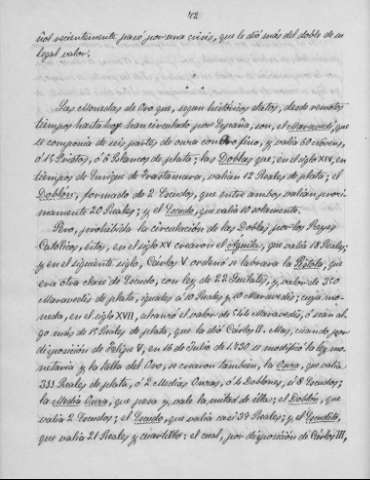 42
ñol recientemente pasó por una crisis, que le dió más del doble de su
legal valor.
Las Monedas de Oro que, segun históricos datos, desde remotos
tiempos hasta hoy han circulado por España, son, el Maravedí, que
se componia de seis partes de onza con oro fino, y valia 60 novenes,
ó 15 Prietos, ó 5 Blancos de plata; las Doblas que, en el siglo XIV, en
tiempos de Enrique de Trastamara, valian 12 Reales de plata; el
Doblón, formado de 2 Escudos, que entre ambos valian proxi-
mamente 20 Reales; y el Escudo, que valia 10 solamente.
Pero, prohibida la circulación de las Doblas por los Reyes
Católicos, éstos, en el siglo XV crearon el Aguila, que valia 18 Reales;
y en el siguiente siglo, Cárlos V ordenó se labrara la Pistola, que
era otra clase de Escudo, con ley de 22 Quilates, y valor de 350
Maravedís de plata, iguales á 10 Reales y 10 Maravedís; cuya mo-
neda, en el siglo XVII, alcanzó el valor de 544 Maravedís, ó sean al-
go más de 15 Reales de plata, que la dió Cárlos II. Mas, cuando por
disposición de Felipe V, en 16 de Julio de 1730 se modificó la ley mo-
netaria y la talla del Oro, se crearon tambien, la Onza, que valia
333 Reales de plata, ó 2 Medias Onzas, ó 4 Doblones, ó 8 Escudos;
la Media Onza, que pesa y vale la mitad de ella; el Doblón, que
valia 2 Escudos; el Escudo, que valia casi 38 Reales; y el Escudito,
que valia 21 Reales y cuartillo: el cual, por disposición de Cárlos III,